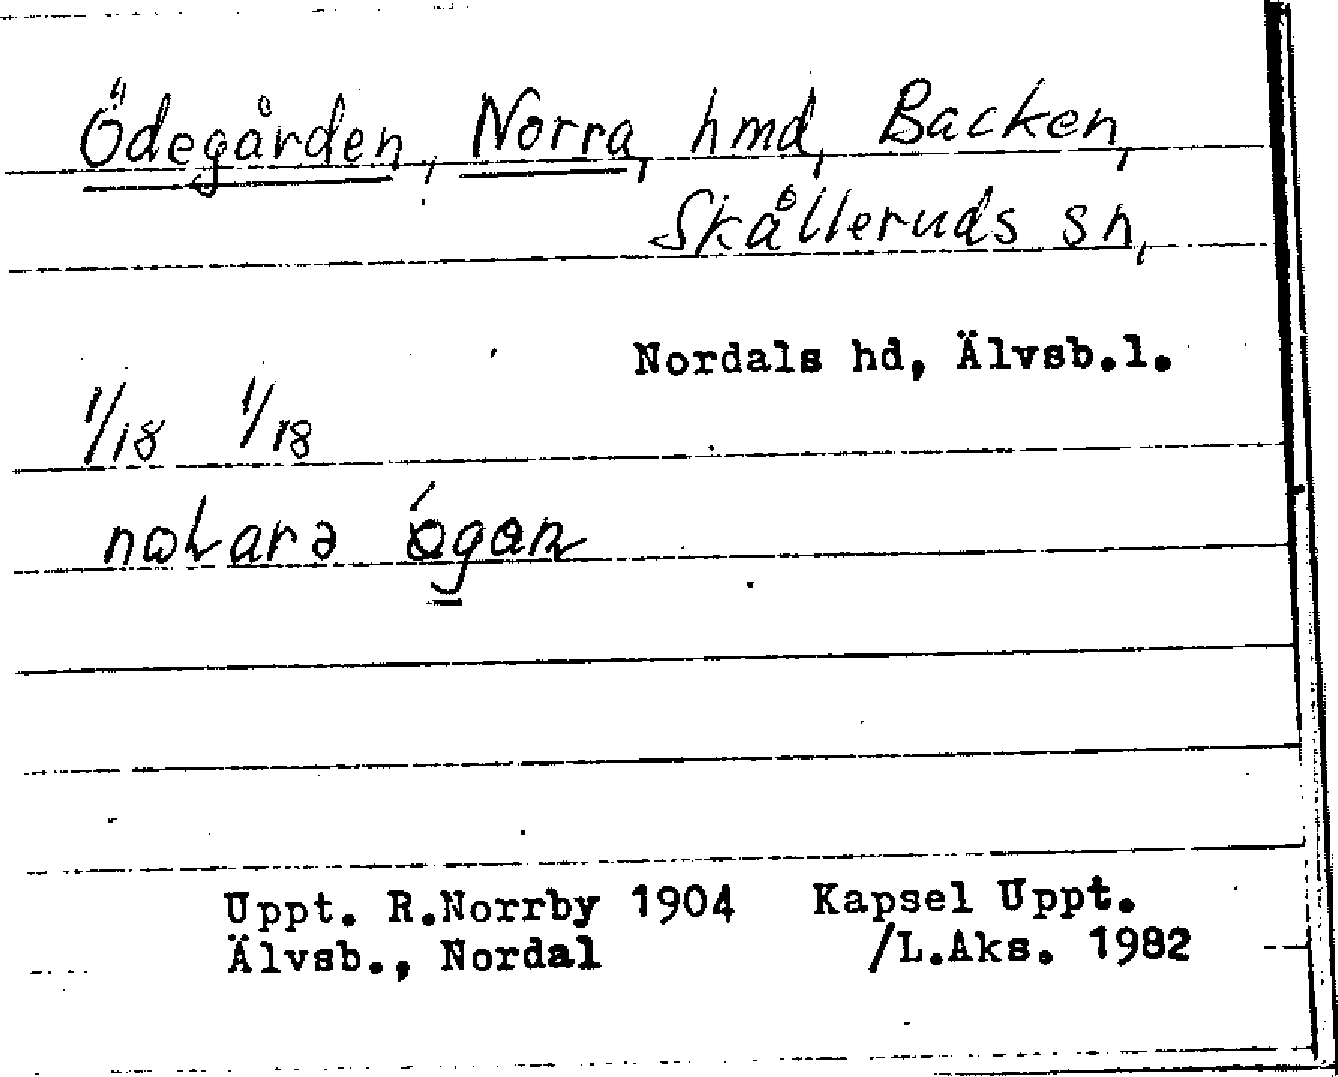 Ödegården, Norra, hmd, Backen,
Skålleruds sn,
Nordals hd, Älvsb.l.
1/18 1/18
Uppt. R.Norrby 1904 Kapsel Uppt.
Älvsb., Nordal /L.Aks. 1982